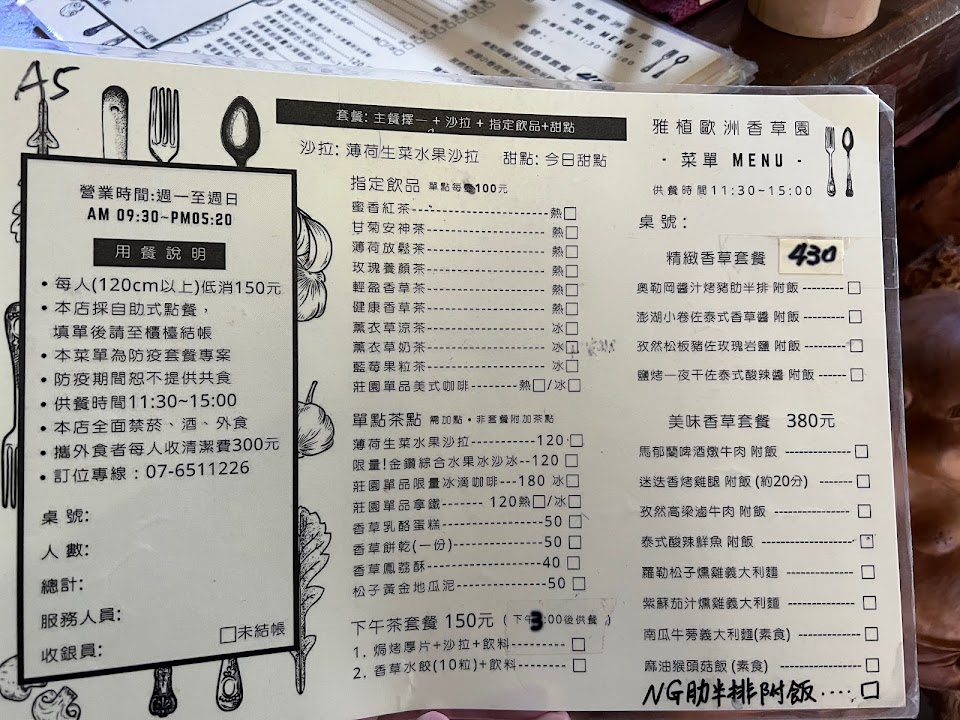 A5
營業時間:週一至週日
AM 09:30~PM05:20
用餐說明
• 每人(120cm以上)低消150元
• 本店採自助式點餐，
填單後請至櫃檯結帳
• 本菜單為防疫套餐專案
• 防疫期間恕不提供共食
• 供餐時間11:30~15:00
• 本店全面禁菸、酒、外食
• 攜外食者每人收清潔費300元
• 訂位專線：07-6511226
桌號:
人數:
總計:
服務人員:
□未結帳
收銀員:
套餐: 主餐擇一 + 沙拉 + 指定飲品+甜點
沙拉: 薄荷生菜水果沙拉 甜點: 今日甜點
指定飲品 單點每壺100元
蜜香紅茶----------熱□
甘菊安神茶----------熱□
薄荷放鬆茶----------熱□
玫瑰養顏茶----------熱□
輕盈香草茶----------熱□
健康香草茶----------熱□
薰衣草涼茶----------冰□
薰衣草奶茶----------冰□
藍莓果粒茶----------冰□
莊園單品美式咖啡-------熱□/冰□
單點茶點 需加點・非套餐附加茶點
薄荷生菜水果沙拉----------120□
限量!金鑽綜合水果冰沙冰--120□
莊園單品限量冰滴咖啡---180 冰□
莊園單品拿鐵------- 120熱□/冰□
香草乳酪蛋糕----------50□
香草餅乾(一份)----------50□
香草鳳荔酥----------40□
松子黃金地瓜泥----------50□
下午茶套餐 150元 (下午3:00後供餐)
1. 焗烤厚片+沙拉+飲料------□
2. 香草水餃(10粒)+飲料------□
雅植歐洲香草園
· 菜單 MENU ·
供餐時間11:30~15:00
桌號：
精緻香草套餐 430
奧勒岡醬汁烤豬肋半排 附飯------□
澎湖小卷佐泰式香草醬 附飯------□
孜然松板豬佐玫瑰岩鹽 附飯------□
鹽烤一夜干佐泰式酸辣醬 附飯-----□
美味香草套餐 380元
馬郁蘭啤酒燉牛肉 附飯----------□
迷迭香烤雞腿 附飯 (約20分) ------□
孜然高梁滷牛肉 附飯 ----------□
泰式酸辣鮮魚 附飯 ----------□
羅勒松子燻雞義大利麵 ----------□
紫蘇茄汁燻雞義大利麵 ----------□
南瓜牛蒡義大利麵(素食) --------□
麻油猴頭菇飯 (素食) ----------□
NG肋半排附飯....□